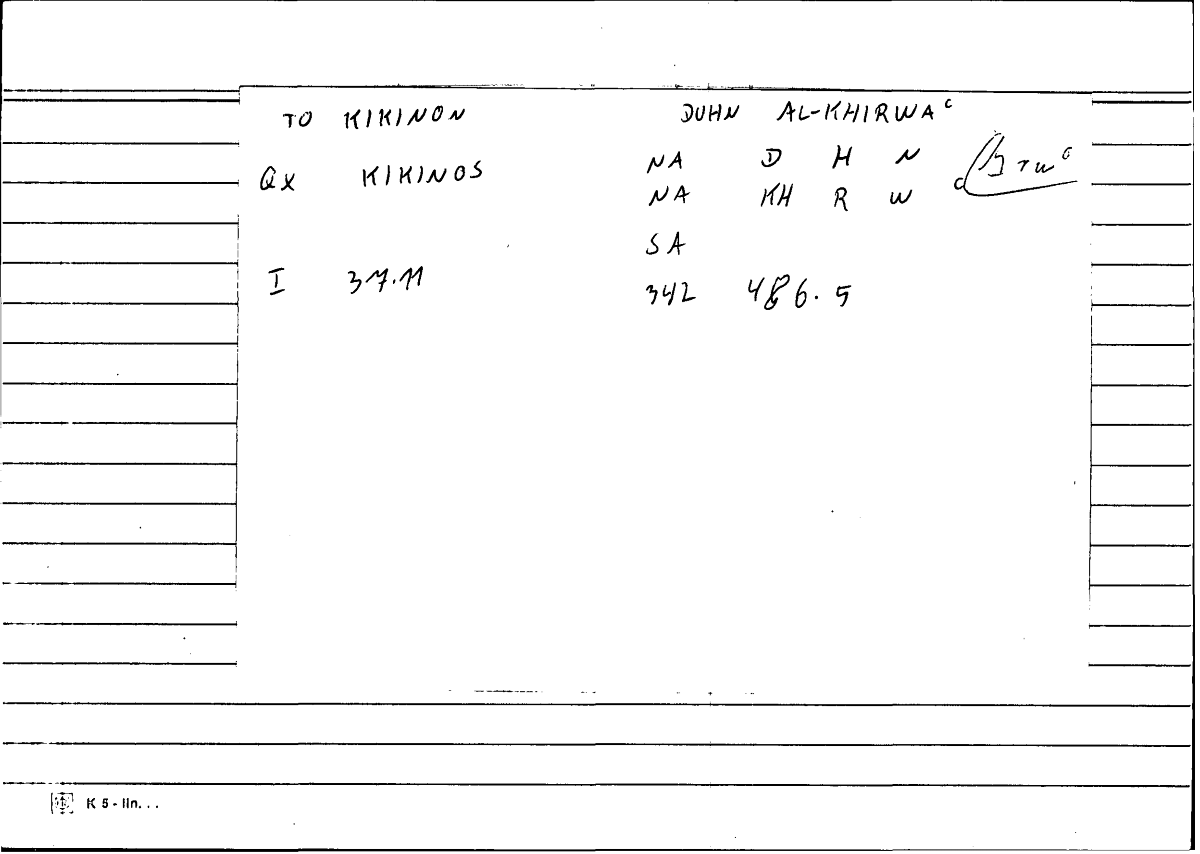 TO KIKINON DUHN AL-KHIRWAᶜ
QX KIKINOS NA D H N
NA KH R W
SA
I 37.11 342 486.5
K 5 - lin. . .